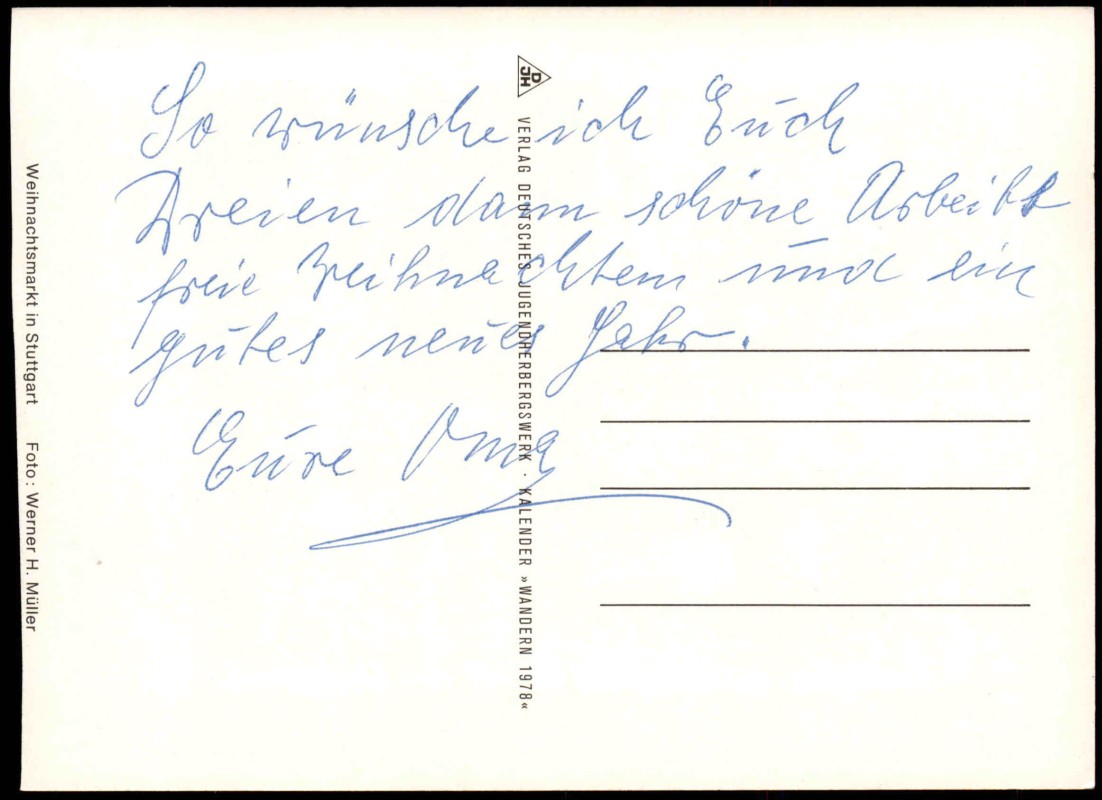 So wünsche ich Euch
Dreien dann schöne Arbeits
freie Weihnachten und ein
gutes neues Jahr.
Eure Oma
DJH
VERLAG DEUTSCHES JUGENDHERBERGSWERK · KALENDER »WANDERN 1978«
Weihnachtsmarkt in Stuttgart Foto: Werner H. Müller